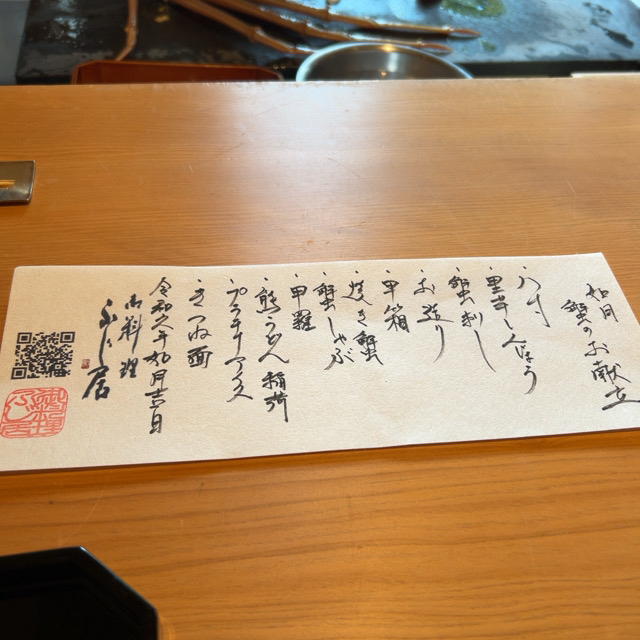 如月
蟹のお献立
・八寸
・里芋しんじょう
・蟹刺し
・お造り
・甲箱
・焼き蟹
・蟹しゃぶ
・甲羅
・熊うどん 稲荷
・プラチナアイス
・きつね面
令和八年如月吉日
御料理
ふじ居